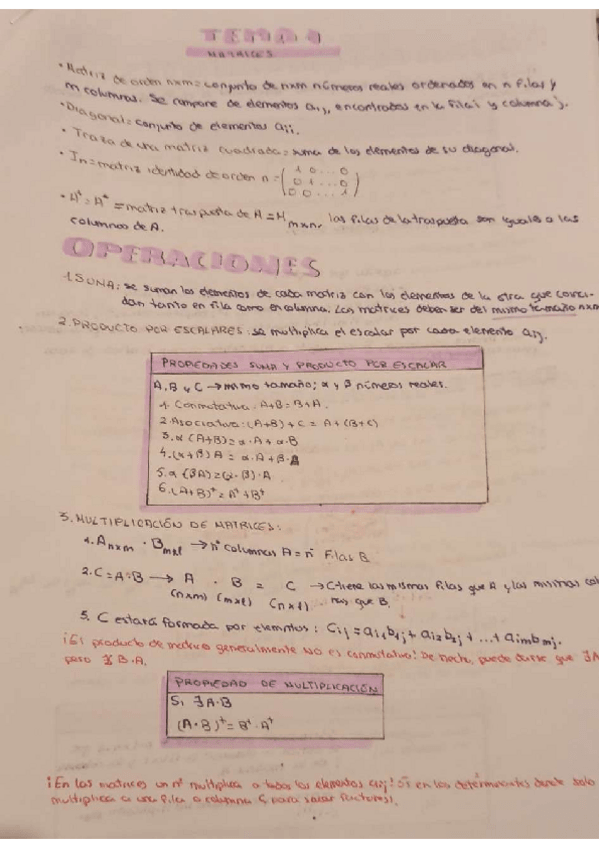 TEMA 1
MATRICES
· Matriz de orden nxm = conjunto de nxm números reales ordenados en n filas y
m columnas. Se compone de elementos aij, encontrados en la fila i y columna j.
· Diagonal = conjunto de elementos aii.
· Traza de una matriz cuadrada = suma de los elementos de su diagonal.
· In = matriz identidad de orden n = (1 0 ... 0
0 1 ... 0
0 0 ... 1)
= matriz traspuesta de A = A mxn, las filas de la traspuesta son iguales a las
columnas de A.
OPERACIONES
1. SUMA: se suman los elementos de cada matriz con los elementos de la otra que coinci-
dan tanto en fila como en columna. Las matrices deben ser del mismo tamaño nxm
2. PRODUCTO POR ESCALARES: se multiplica el escalar por cada elemento aij.
PROPIEDADES SUMA Y PRODUCTO POR ESCALAR
A, B y C → mismo tamaño; α y β números reales.
1. Conmutativa: A+B = B+A.
2. Asociativa: (A+B) + C = A + (B+C)
3. α (A+B) = α·A + α·B
4. (α+β) A = α·A + β·A
5. α (βA) = (α·β)·A
6. (A+B)ᵗ = Aᵗ + Bᵗ
3. MULTIPLICACIÓN DE MATRICES:
1. Anxm · Bmxl → nº columnas A = nº filas B
2. C = A·B → A · B = C → C tiene las mismas filas que A y las mismas co
(nxm) (mxl) (nxl) nas que B.
3. C estará formada por elementos: Cij = ai1b1j + ai2b2j + ... + aimbmj.
¡El producto de matrices generalmente NO es conmutativo! De hecho, puede darse que ∃A
pero ∄ B·A.
PROPIEDAD DE MULTIPLICACIÓN
Si ∃A·B
(A·B)ᵗ = Bᵗ·Aᵗ
¡En las matrices un nº multiplica a todos los elementos aij! en los determinantes donde solo
multiplica a una fila o columna (para sacar factores).